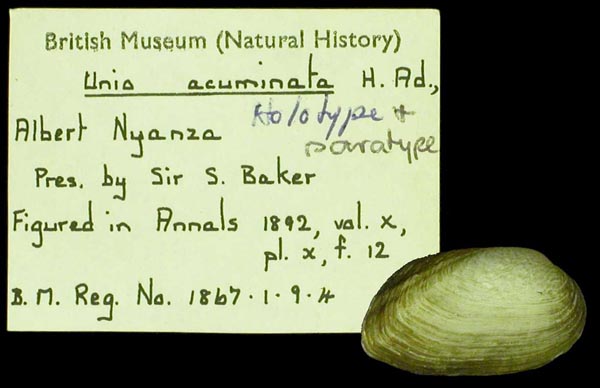 British Museum (Natural History)
Unio acuminata H. Ad.,
Holotype +
paratype
Albert Nyanza
Pres. by Sir S. Baker
Figured in Annals 1892, vol. x,
pl. x, f. 12
B. M. Reg. No. 1867·1·9·4